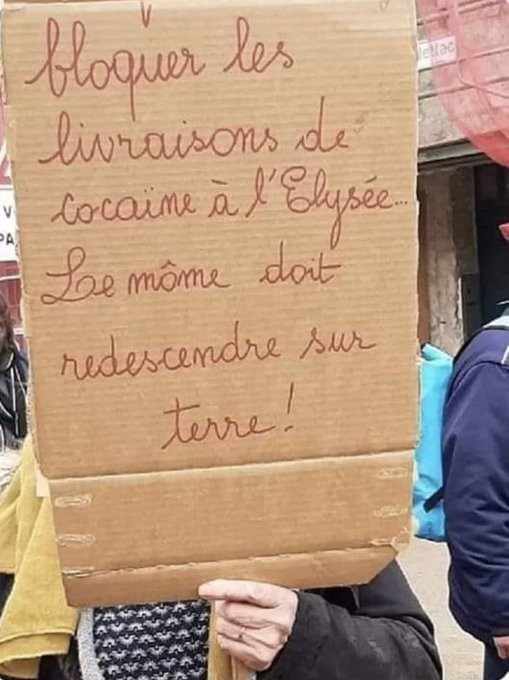 bloquer les
livraisons de
cocaïne à l'Elysée...
Le môme doit
redescendre sur
terre !